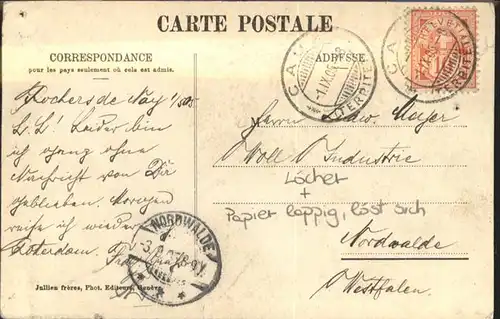 CARTE POSTALE
CORRESPONDANCE
pour les pays seulement où cela est admis.
ADRESSE
Rochers de Nay 1/9 05
L. L! Leider bin
ich ganz ohne
Nachricht von Dir
geblieben. Morgen
reise ich wieder
Rotterdam.
Herrn Meyer
Woll Industrie
Löcher
+
Papier lappig, löst sich
Nordwalde
Westfalen.
NORDWALDE
Jullien frères, Phot. Editeurs, Genève